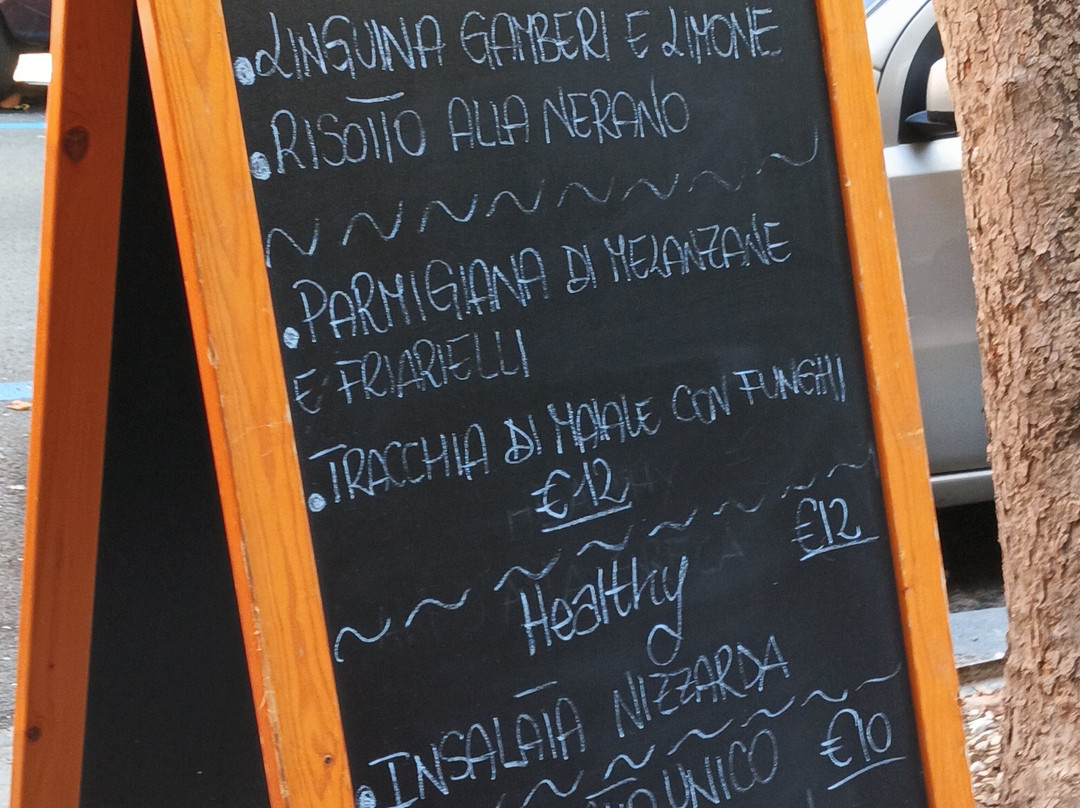 • LINGUINA GAMBERI E LIMONE
• RISOTTO ALLA NERANO
• PARMIGIANA DI MELANZANE
E FRIARIELLI
• TRACCHIA DI MAIALE CON FUNGHI
€12
€12
Healthy
• INSALATA NIZZARDA
€10
UNICO